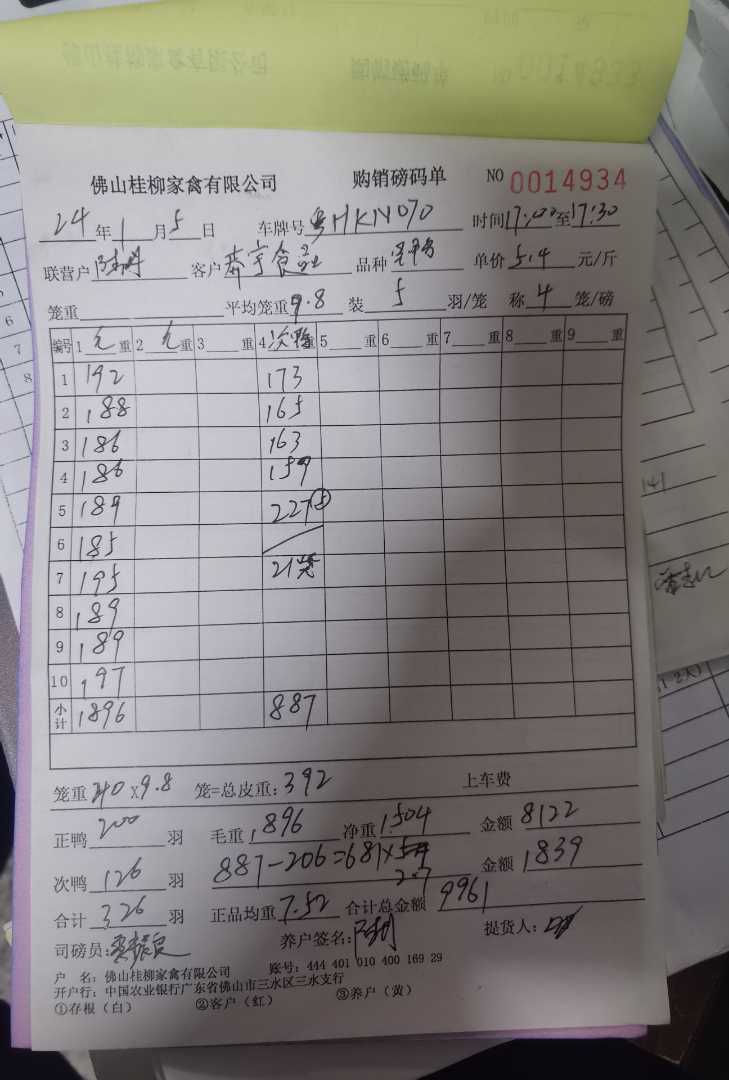 佛山桂柳家禽有限公司 购销磅码单 NO 0014934
24年1月5日 车牌号粤HKN070 时间17:00至17:30
联营户 客户 宇食品 品种 单价5.4元/斤
笼重 平均笼重9.8 装5羽/笼 称4笼/磅
编号 1 毛重 2 毛重 3 重 4 次鸭重 5 重 6 重 7 重 8 重 9 重
1 192 173
2 188 165
3 186 163
4 186 159
5 189 227⑤
6 185
7 195 21笼
8 189
9 189
10 197
小计 1896 887
笼重40X9.8 笼=总皮重:392 上车费
正鸭200羽 毛重1896 净重1504 金额8122
次鸭126羽 887-206=681×2.7 金额1839
合计326羽 正品均重7.52 合计总金额9961
司磅员: 养户签名: 提货人:
户 名:佛山桂柳家禽有限公司 账号:444 401 010 400 169 29
开户行:中国农业银行广东省佛山市三水区三水支行
①存根(白) ②客户(红) ③养户(黄)